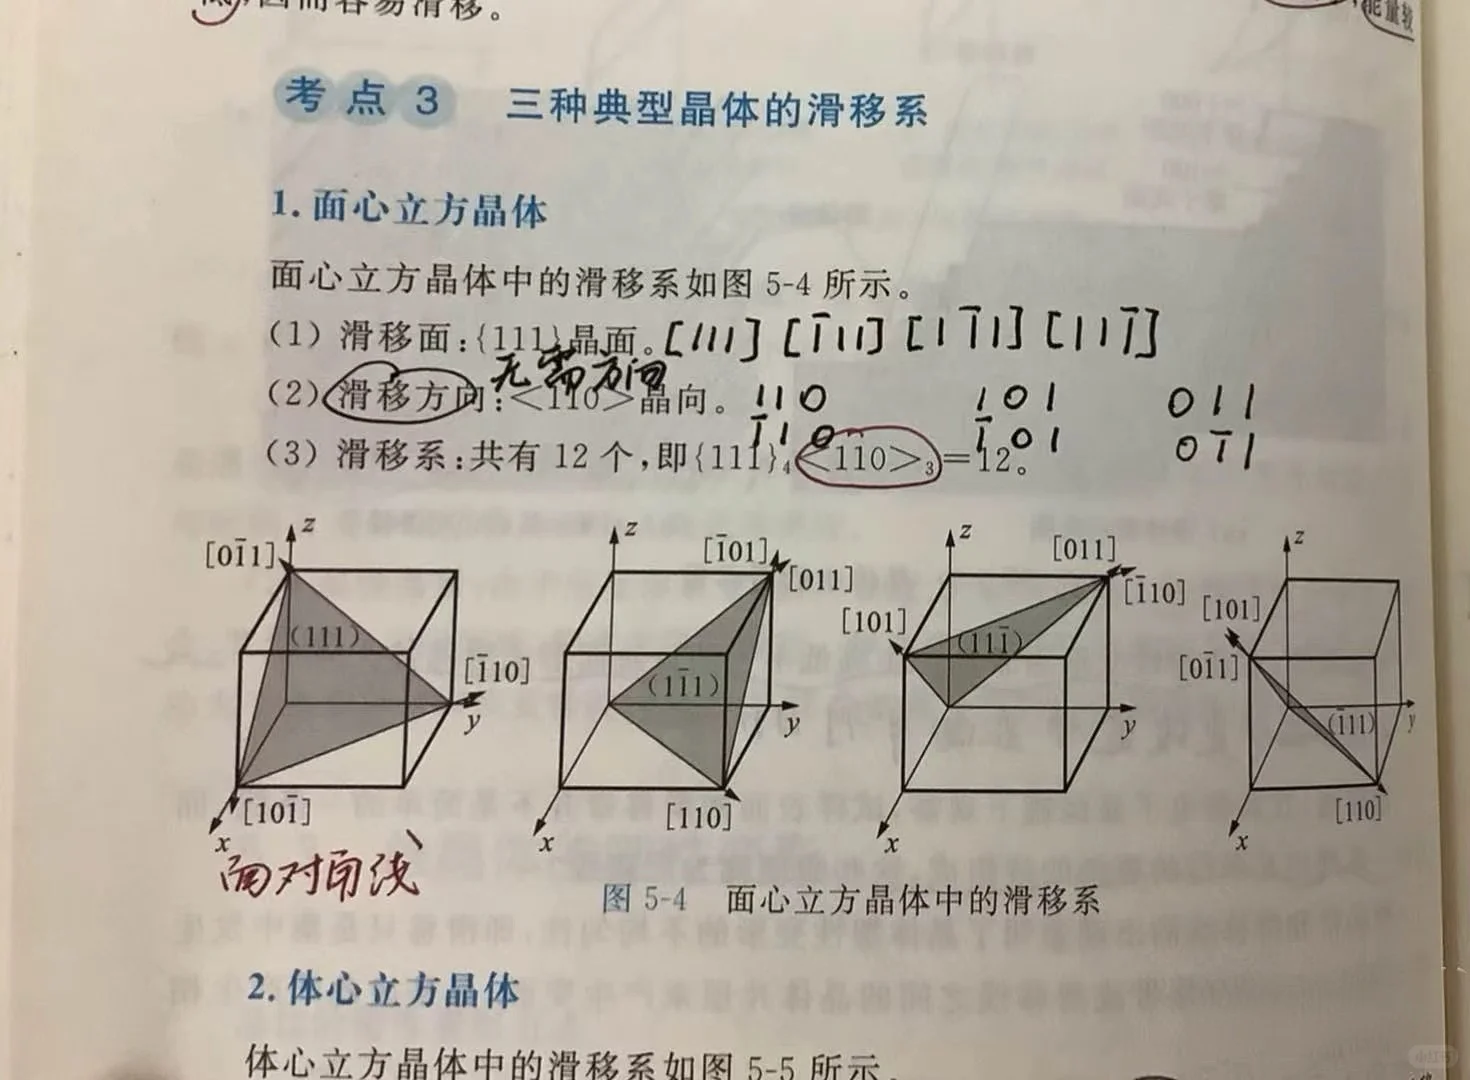 因而容易滑移。
能量较
考点 3 三种典型晶体的滑移系
1. 面心立方晶体
面心立方晶体中的滑移系如图 5-4 所示。
(1) 滑移面:{111}晶面。[111] [1̄11] [11̄1] [111̄]
无需方向
(2) 滑移方向:<110>晶向。 110 101 011
1̄10 1̄01 01̄1
(3) 滑移系:共有 12 个,即{111}₄<110>₃=12。
z z z z
[01̄1] [1̄01] [011] [011] [1̄10] [101] [101]
(111) [1̄10] (11̄1) (111̄) [01̄1] (1̄11)
y y y y
[101̄] [110] [110]
x x x x
面对角线
图 5-4 面心立方晶体中的滑移系
2. 体心立方晶体
体心立方晶体中的滑移系如图 5-5 所示。